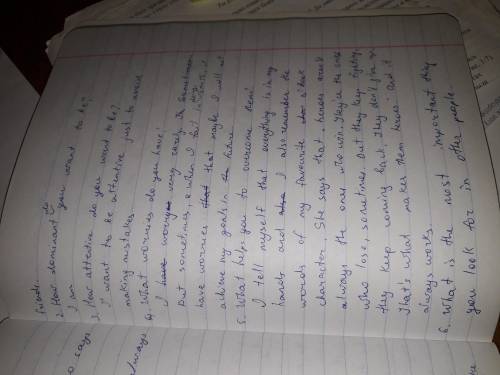 friends.
2. How dominant do you want to be?
I am
3. How attentive do you want to be?
I want to be attentive just to avoid
making mistakes
4. What worries do you have?
I have worry very rarely. Sometimes
But sometimes when I fail
have worries that maybe I will not
achieve my goals in future
5. What helps you to overcome them?
I tell myself that everything is in my
hands and I also remember the
words of my favourite
character. She says that heroes aren't
always the ones who win. They're the ones
who lose, sometimes. But they keep fighting,
they keep coming back, they don't give up.
That's what makes them heroes. And it
always works.
6. What is the most important thing
you look for in other people.
o says
always